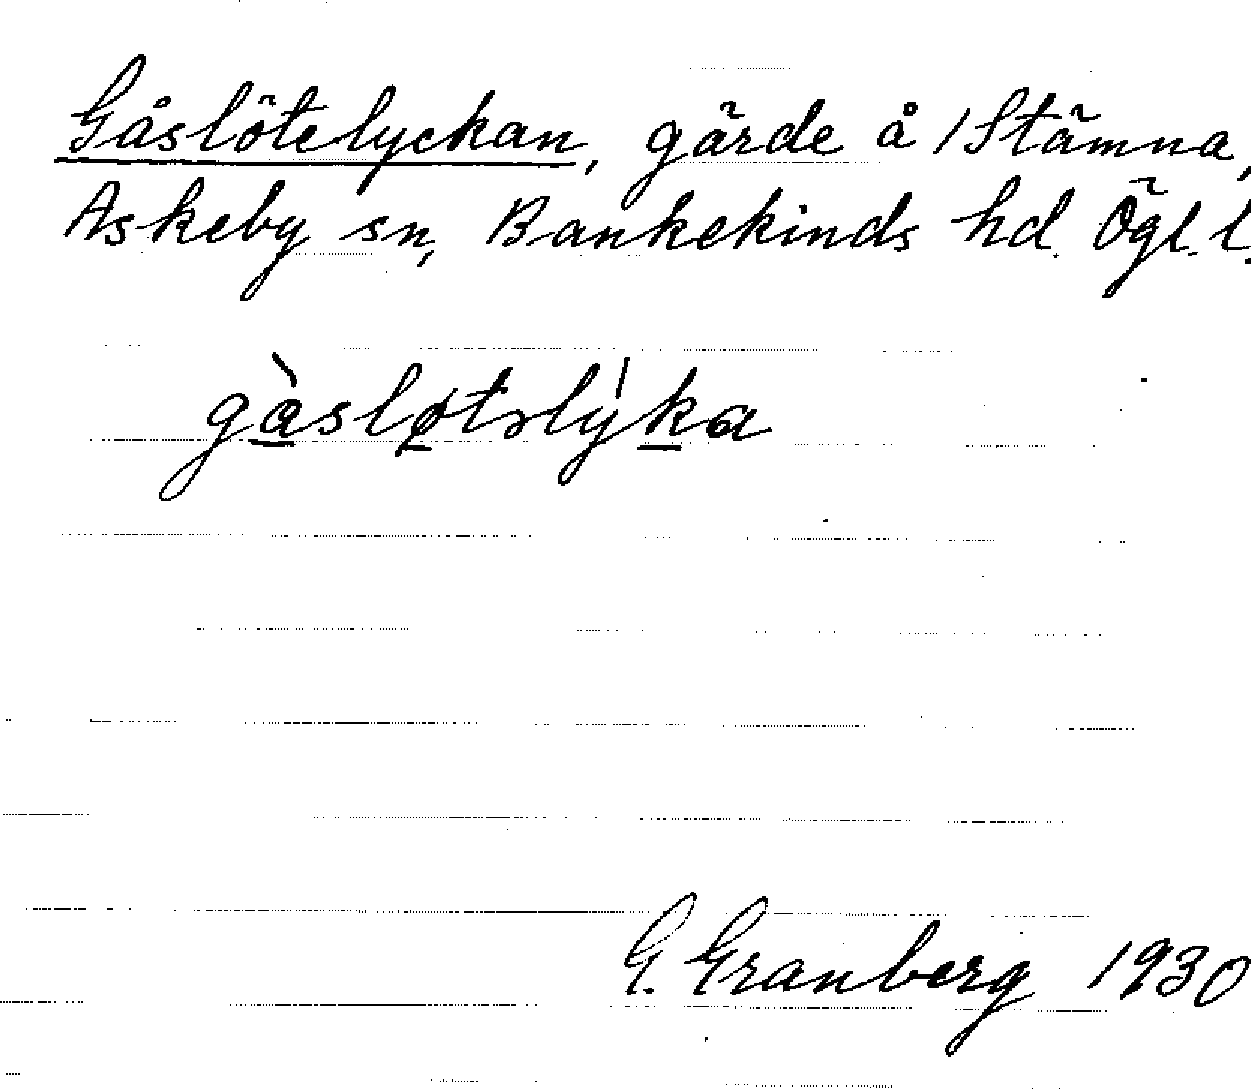 Gåslötelyckan, gärde å /Stämna,
Askeby sn, Bankekinds hd. Ögl. l.
gàsløtslýka
G. Granberg 1930